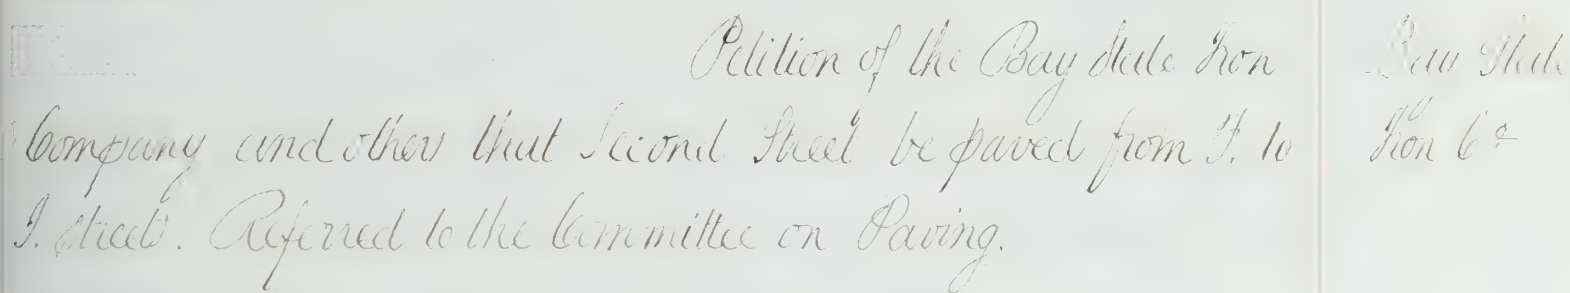 Petition of the Bay State Iron
Company and others that Second Street be paved from F. to
I. streets. Referred to the Committee on Paving.
Bay State
Iron Co